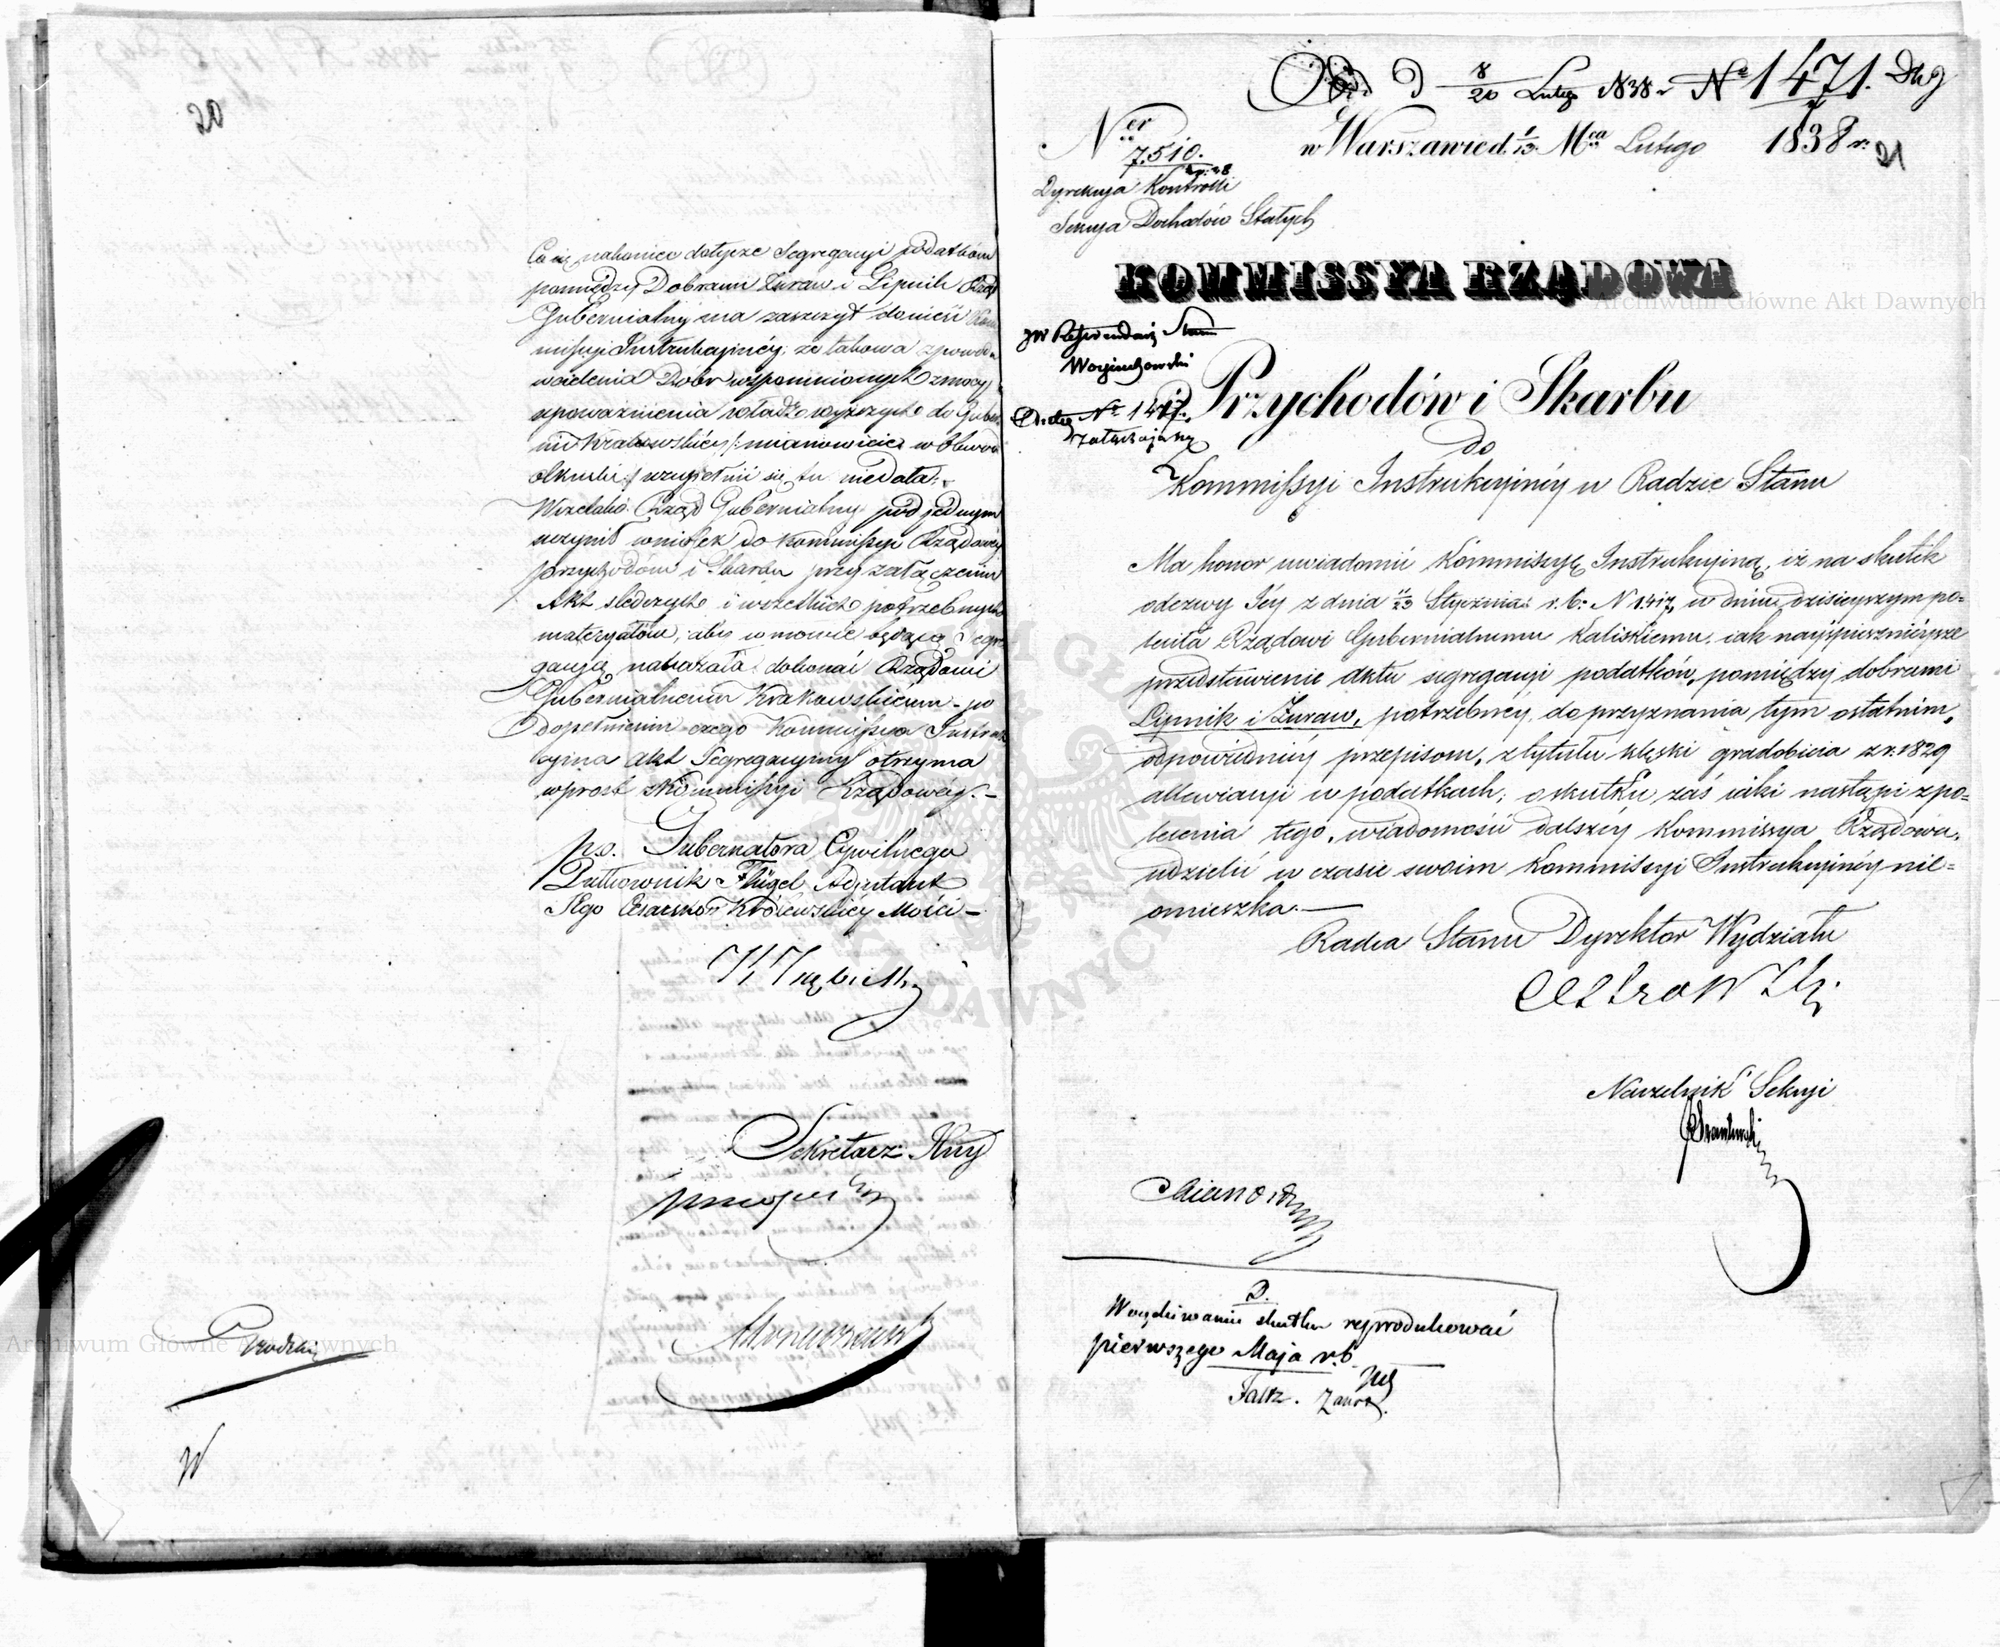 20
Co się nakoniec dotycze Segregacyi podatków
pomiędzy Dobrami Żuraw i Lipnik Rząd
Gubernialny ma zaszczyt donieść Kom
missyi Instrukcyjnéy, że takowa z powodu
wcielenia Dobr wspomnionych z mocy
upoważnienia władz wyższych do Guber
nii Krakowskiéy /: mianowicie w Obwód
Olkuski :/ uzupełnić się tu nie dała.
Wszelako Rząd Gubernialny pod jednym
uczynił wniosek do Kommissyi Rządowéy
Przychodów i Skarbu przy załączeniu
Akt śledczych i wszelkich potrzebnych
materyałów, aby w mowie będącą Segre
gacyą nakazała dokonać Rządowi
Gubernialnemu Krakowskiemu - po
dopełnieniu czego Kommissya Instruk
cyjna akt Segregacyjny otrzyma
wprost z Kommissyi Rządowéy. -
p.o. Gubernatora Cywilnego
Pułkownik Flügel Adjutant
Jego Cesarsko Królewskiéy Mości -
Sekretarz Jlny
W
D 8/20 Lutego 1838 r. Nr 1471. Dług
Ner 7,510.
w Warszawie d. 1/13 Mca Lutego 1838 r.
21
Dyrekcya Kontrolli
Sekcya Dochodów Stałych
KOMMISSYA RZĄDOWA
JW Referendarz Stanu
Woyciechowski
Przychodów i Skarbu
Nr 1417.
załączając
do
Kommissyi Instrukcyinéy w Radzie Stanu
Ma honor uwiadomić Kommissyę Instrukcyiną, iż na skutek
odezwy Jéy z dnia 11/23 Stycznia r. b. N 1417, w dniu dzisieyszym po=
leciła Rządowi Gubernialnemu Kaliskiemu iak nayśpieszniéysze
przedstawienie aktu segregacyi podatków, pomiędzy dobrami
Lipnik i Żuraw, potrzebnéy do przyznania tym ostatnim,
odpowiedniéy przepisom, z tytułu klęski gradobicia z r. 1829
allewiacyi w podatkach; o skutku zaś iaki nastąpi z po=
lecenia tego, wiadomość dalszéy Kommissya Rządowa,
udzielić w czasie swoim Kommissyi Instrukcyinéy nie=
omieszka. —
Radca Stanu Dyrektor Wydziału
Naczelnik Sekcyi
D.
W oczekiwaniu skutku reprodukować
pierwszego Maja r. b.
Archiwum Główne Akt Dawnych
Archiwum Główne Akt Dawnych